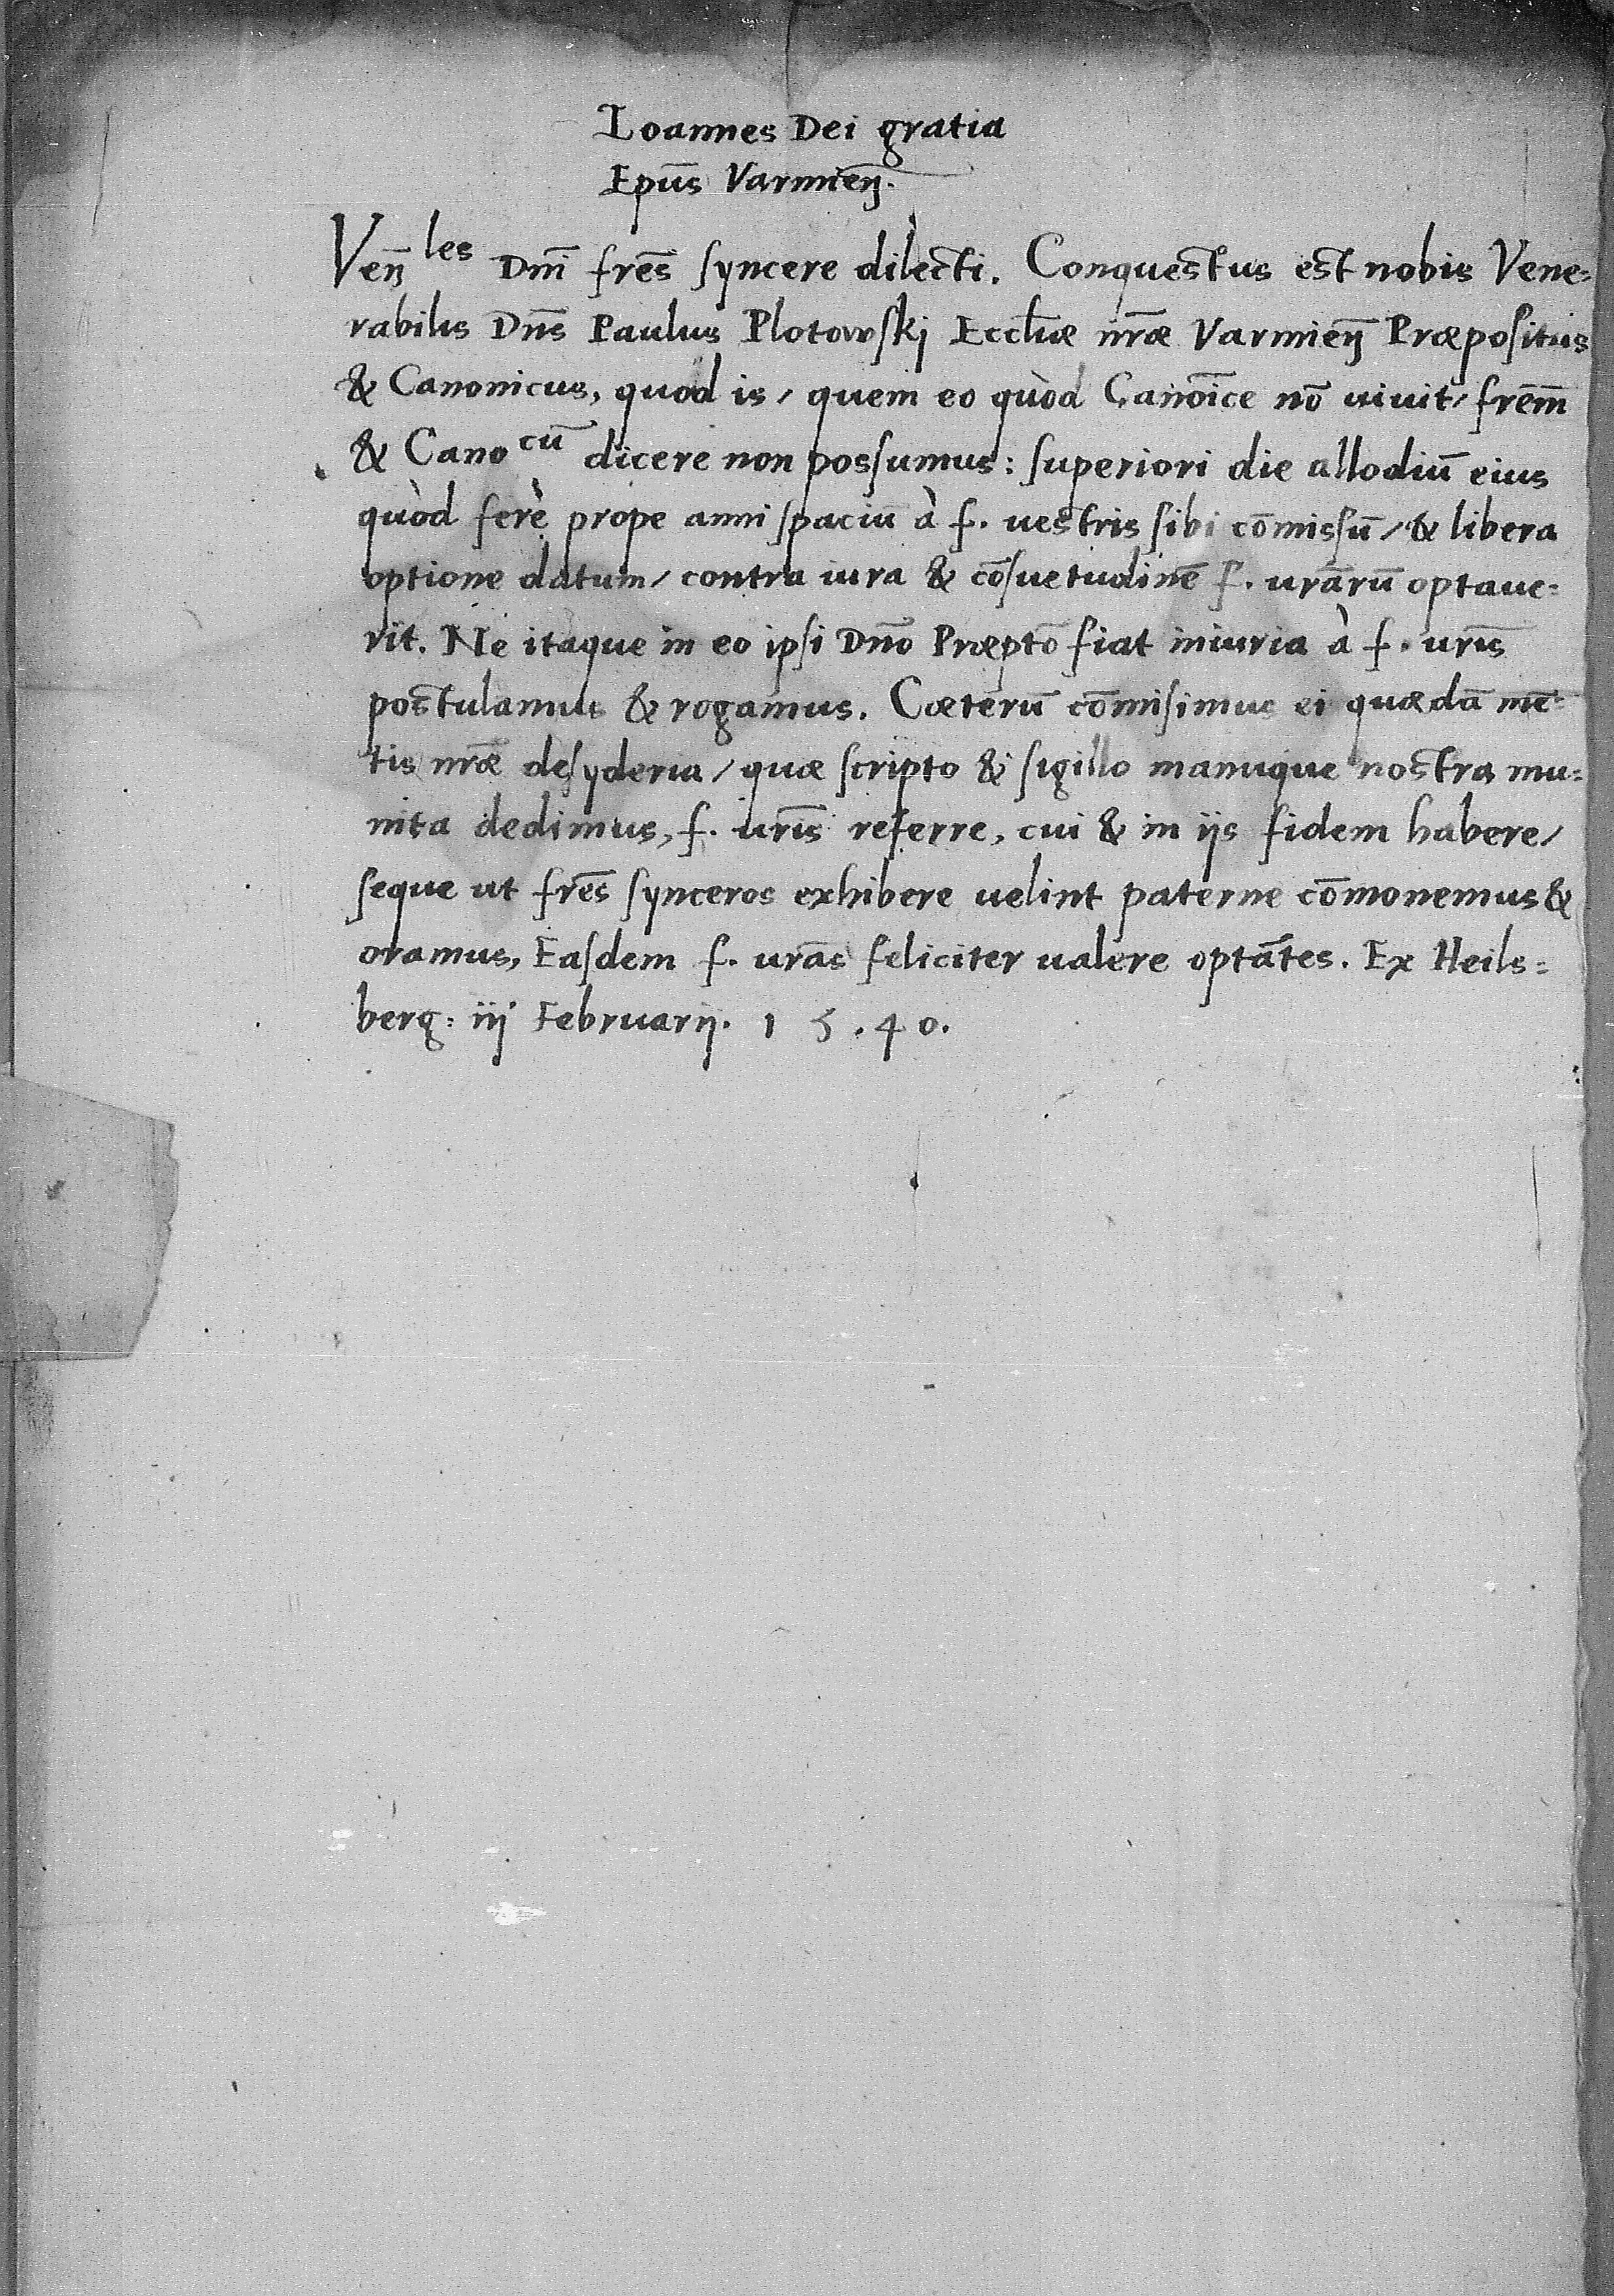 Ioannes Dei gratia
Epūs Varmieñ.
Veñles Dnī frēs syncere dilecti. Conquestus est nobis Vene=
rabilis Dn̄s Paulus Plotowskj Eccl̄iæ nr̄æ Varmieñ Præpositus
& Canonicus, quod is / quem eo quòd Canoīce nō uiuit / frēm
& Canocū dicere non possumus: superiori die allodiū eius
quòd ferè prope anni spaciū à f. uestris sibi cōmissū / & libera
optione datum / contra iura & cōsuetudinē f. ur̄arū optaue=
rit. Ne itaque in eo ipsi Dn̄o Præptō fiat iniuria à f. ur̄is
postulamus & rogamus. Cæterū cōmisimus ei quædā mē=
tis nr̄æ desyderia / quæ scripto & sigillo manuque nostra mu=
nita dedimus, f. ur̄is referre, cui & in iis fidem habere /
seque ut frēs synceros exhibere uelint paterne cōmonemus &
oramus, Easdem f. ur̄as feliciter ualere optātes. Ex Heils=
berg: iij Februarij. 15.40.